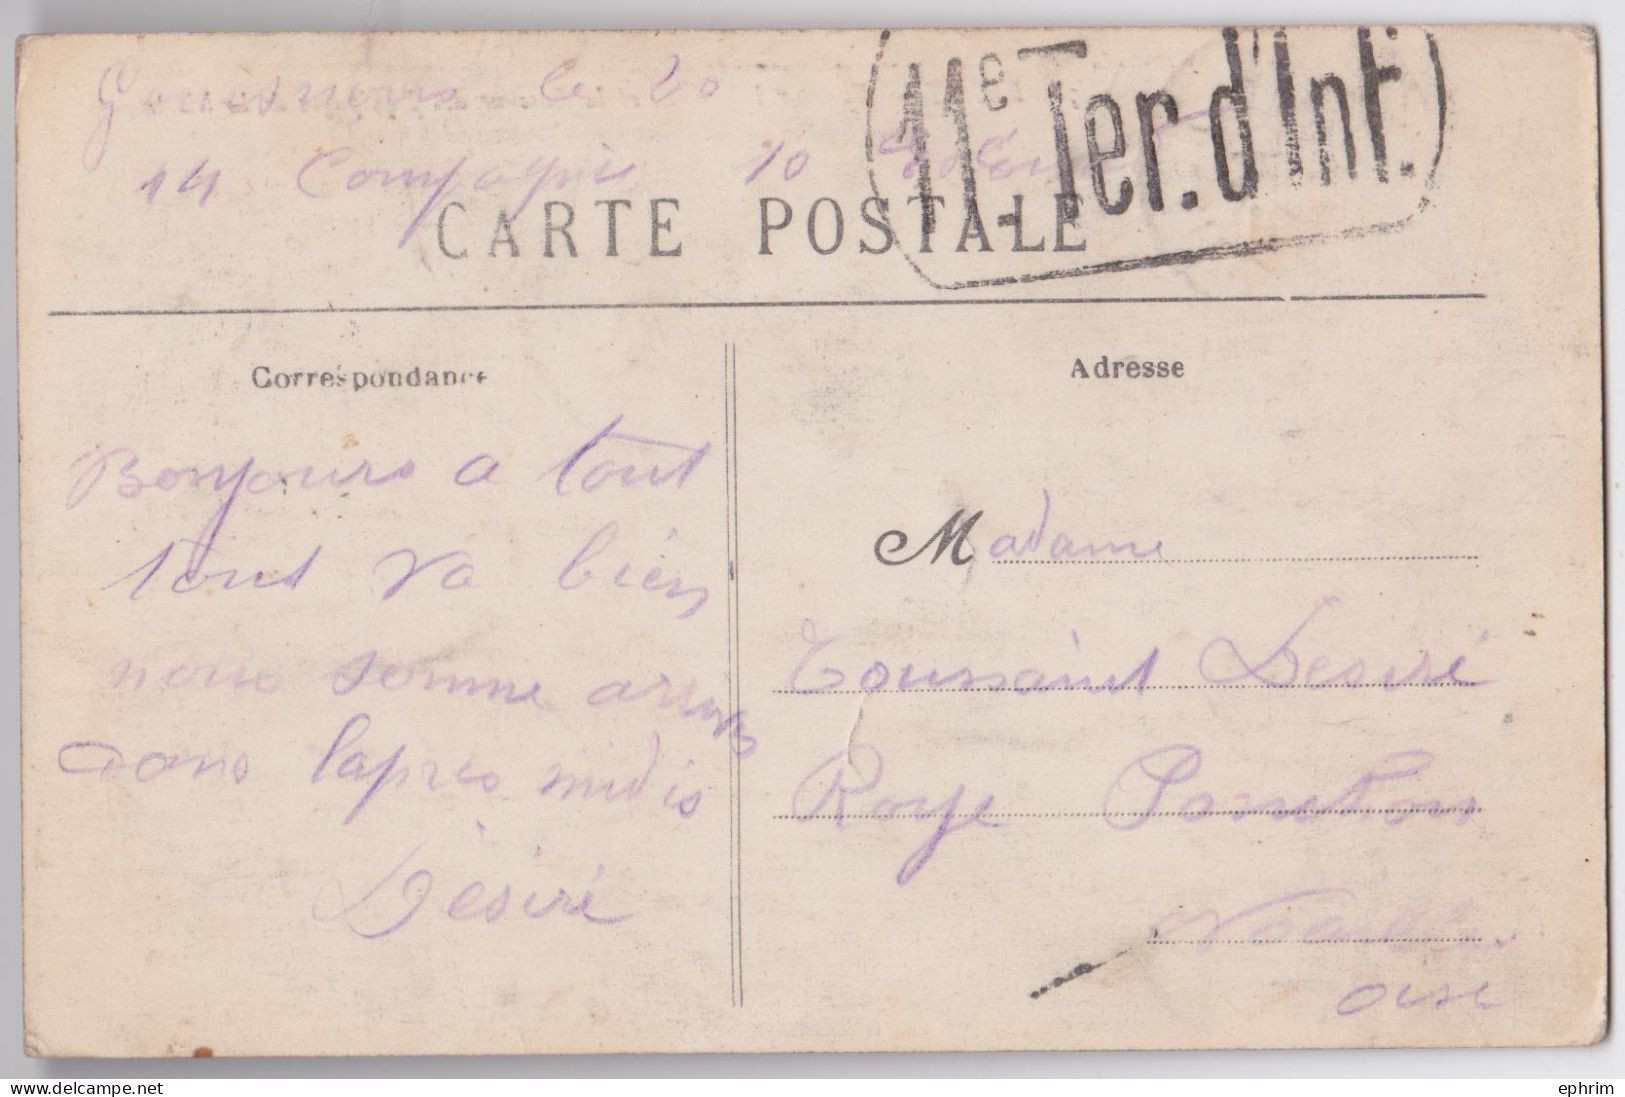 le 20
11e Ter. d'Inf.
14 Compagnie 10
CARTE POSTALE
Correspondance
Bonjours a tout
tout va bien
nous somme arrives
dans lapres midis
Désiré
Adresse
Madame
Toussaint Desiré
Roye
Noailles
oise
delcampe.net
ephrim